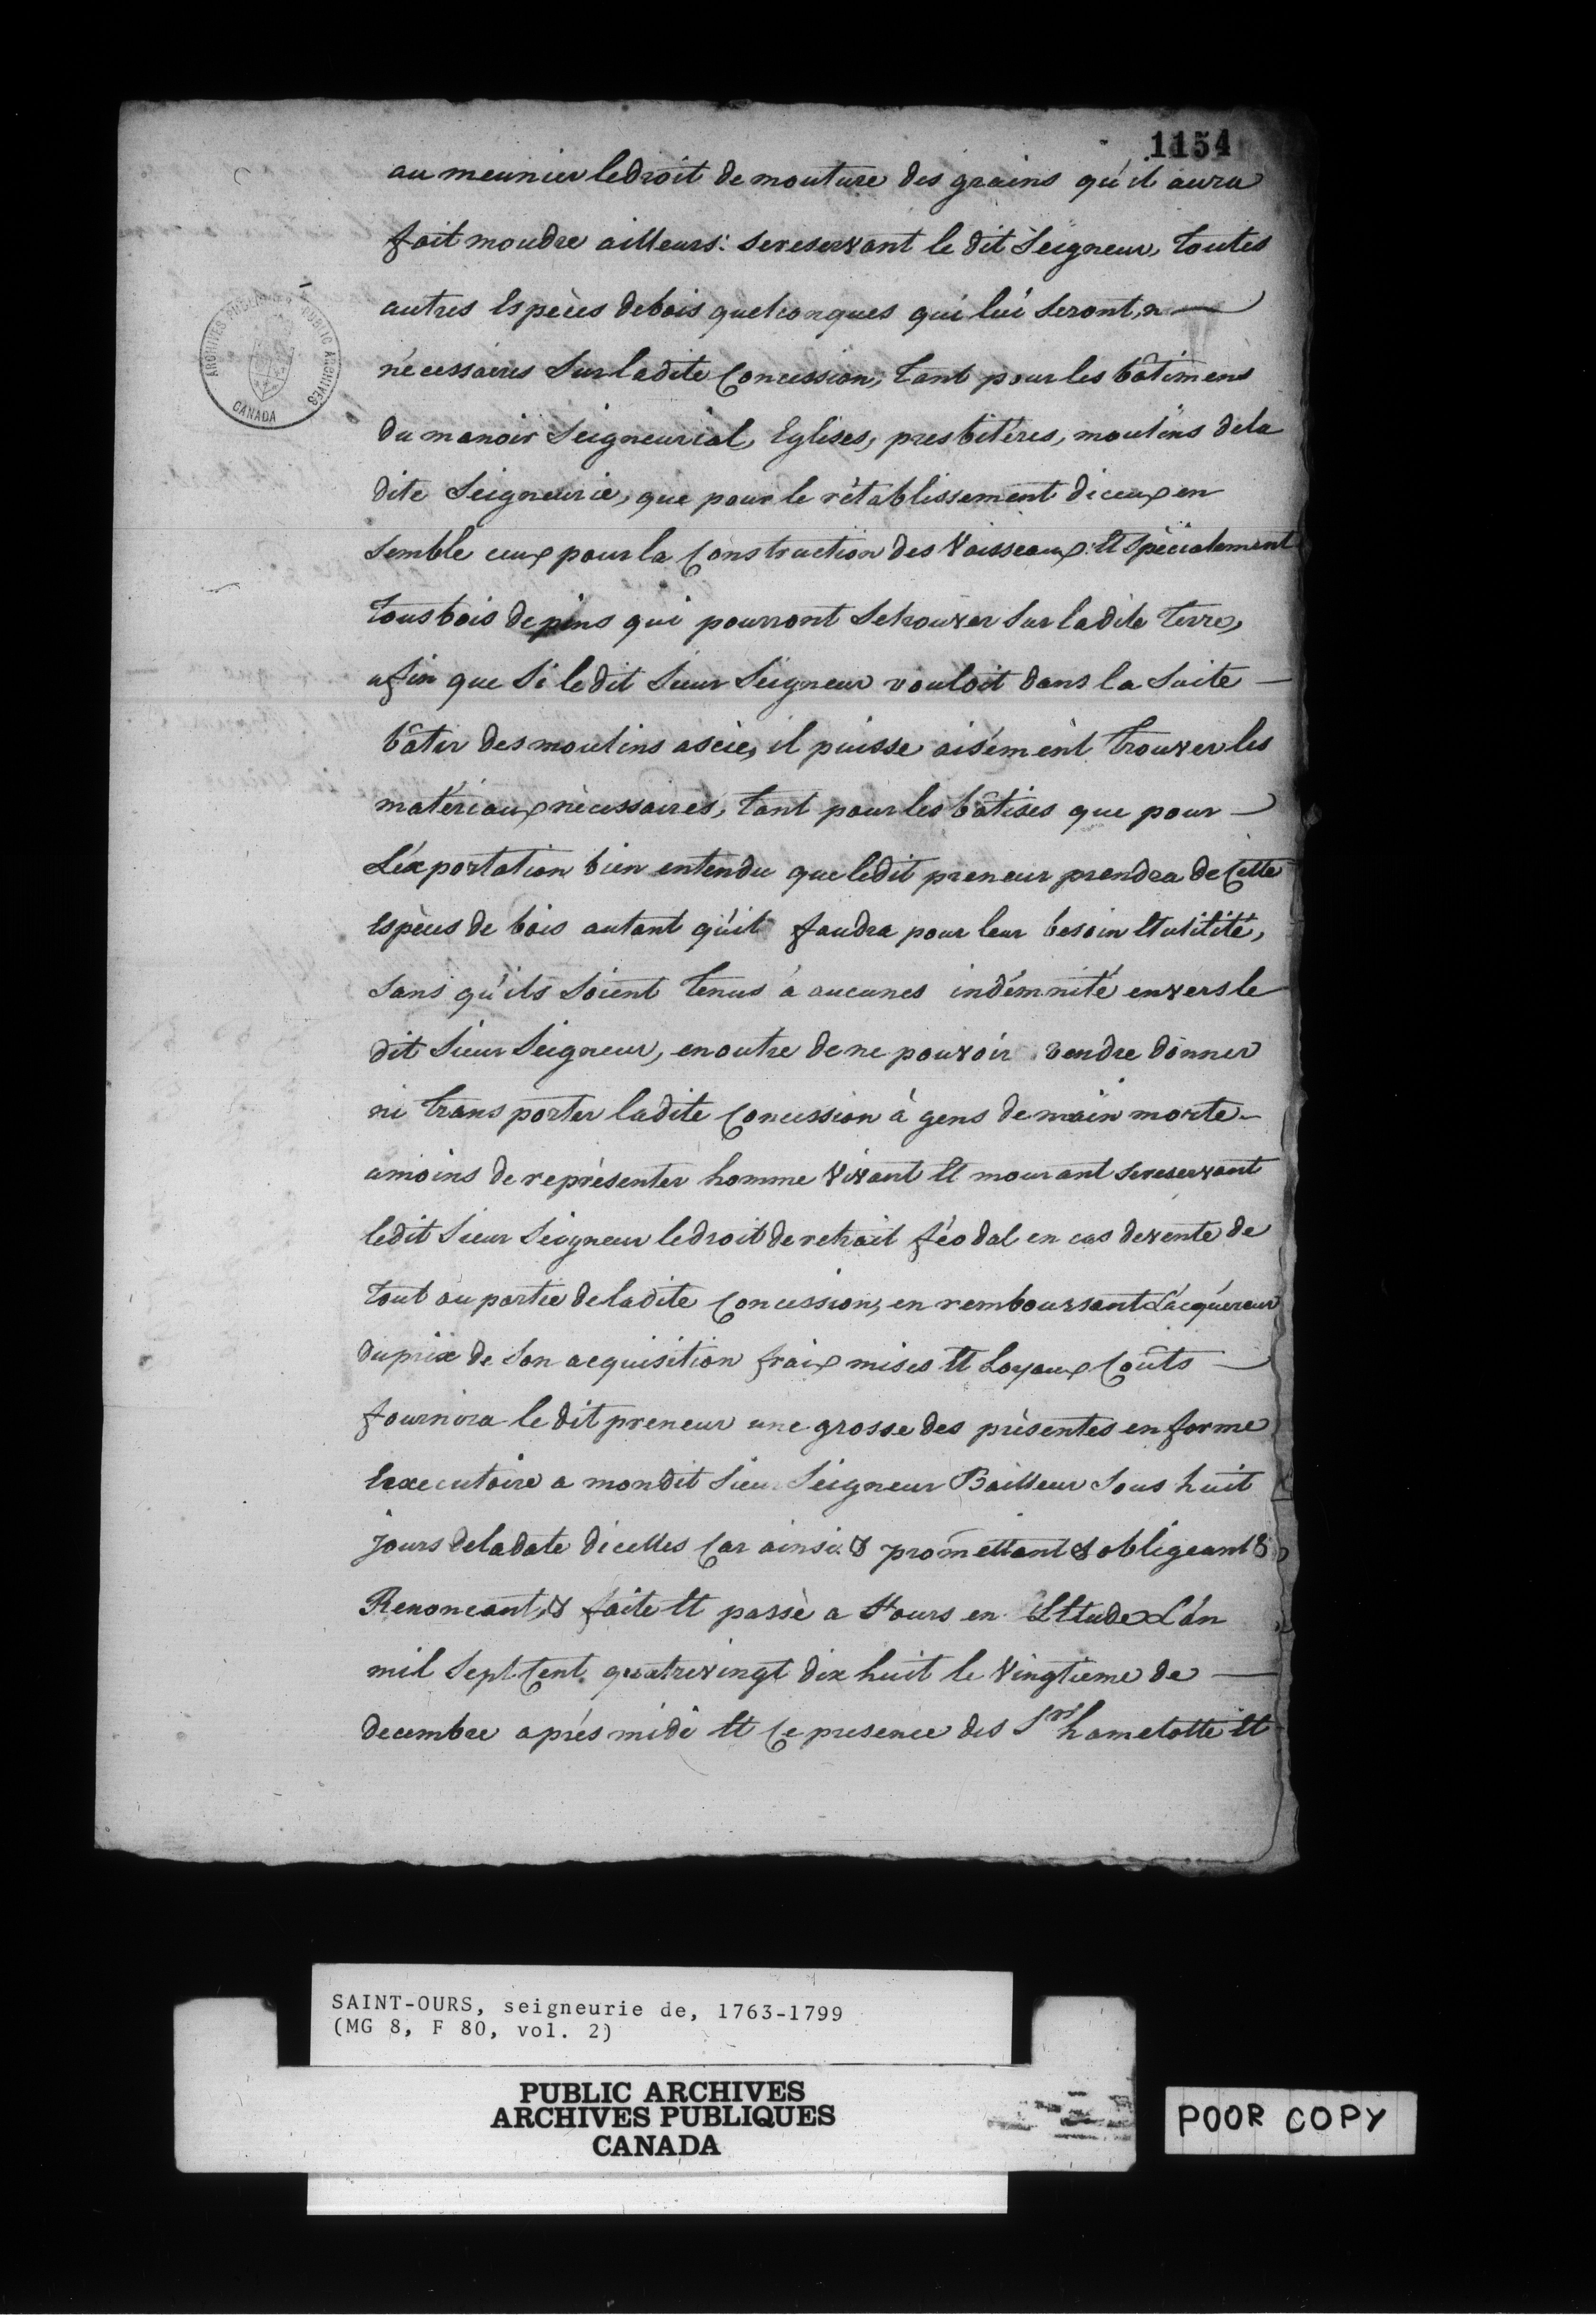 1154
au meunier ledroit de mouture des grains qu'il aura
fait moudre ailleurs: sereservant le dit Seigneur, toutes
autres Espèces debois quelconques qui lui seront, n—
nécessaires sur ladite Concession, tant pour les bâtimens
du manoir Seigneurial, Eglises, presbitéres, moulins dela
dite Seigneurie, que pour le rétablissement diceux en
semble ceux pour la Construction des Vaisseaux: Et Spécialement
tous bois de pins qui pourront setrouver sur ladite terre,
afin que si le dit Sieur Seigneur vouloit dans la suite —
bâtir des moulins ascie, il puisse aisément trouver les
matériaux nécessaires, tant pour les bâtises que pour —
L'éxportation bien entendu que ledit preneur prendra de Cette
Espèces de bois autant qu'il faudra pour leur besoin Et utilité,
sans qu'ils soient tenus à aucunes indémnité envers le
dit Sieur Seigneur, en outre de ne pouvoir vendre donner
ni transporter ladite Concession à gens de main morte —
amoins de représenter homme Vivant Et mourant sereservant
ledit Sieur Seigneur ledroit de retrait féodal en cas devente de
tout ou partie deladite Concession, en remboursant L'acquéreur
du prix de son acquisition fraix mises Et Loyaux Coûts —
fournira le dit preneur une grosse des présentes en forme
Exécutoire a mondit Sieur Seigneur Bailleur sous huit
jours deladate dicelles Car ainsi & promettant & obligeant &
Renoncant, & faite Et passé a St ours en Ettude L'an
mil Sept Cent quatrevingt dix huit le Vingtieme de —
decembre aprés midi Et Ce presence des Srs hamelotte Et
ARCHIVES PUBLIQUES PUBLIC ARCHIVES
CANADA
SAINT-OURS, seigneurie de, 1763-1799
(MG 8, F 80, vol. 2)
PUBLIC ARCHIVES
ARCHIVES PUBLIQUES
CANADA
POOR COPY